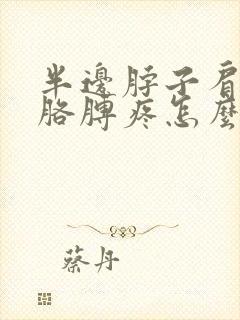 半邊脖子肩
胳膊疼怎麼
蔡丹